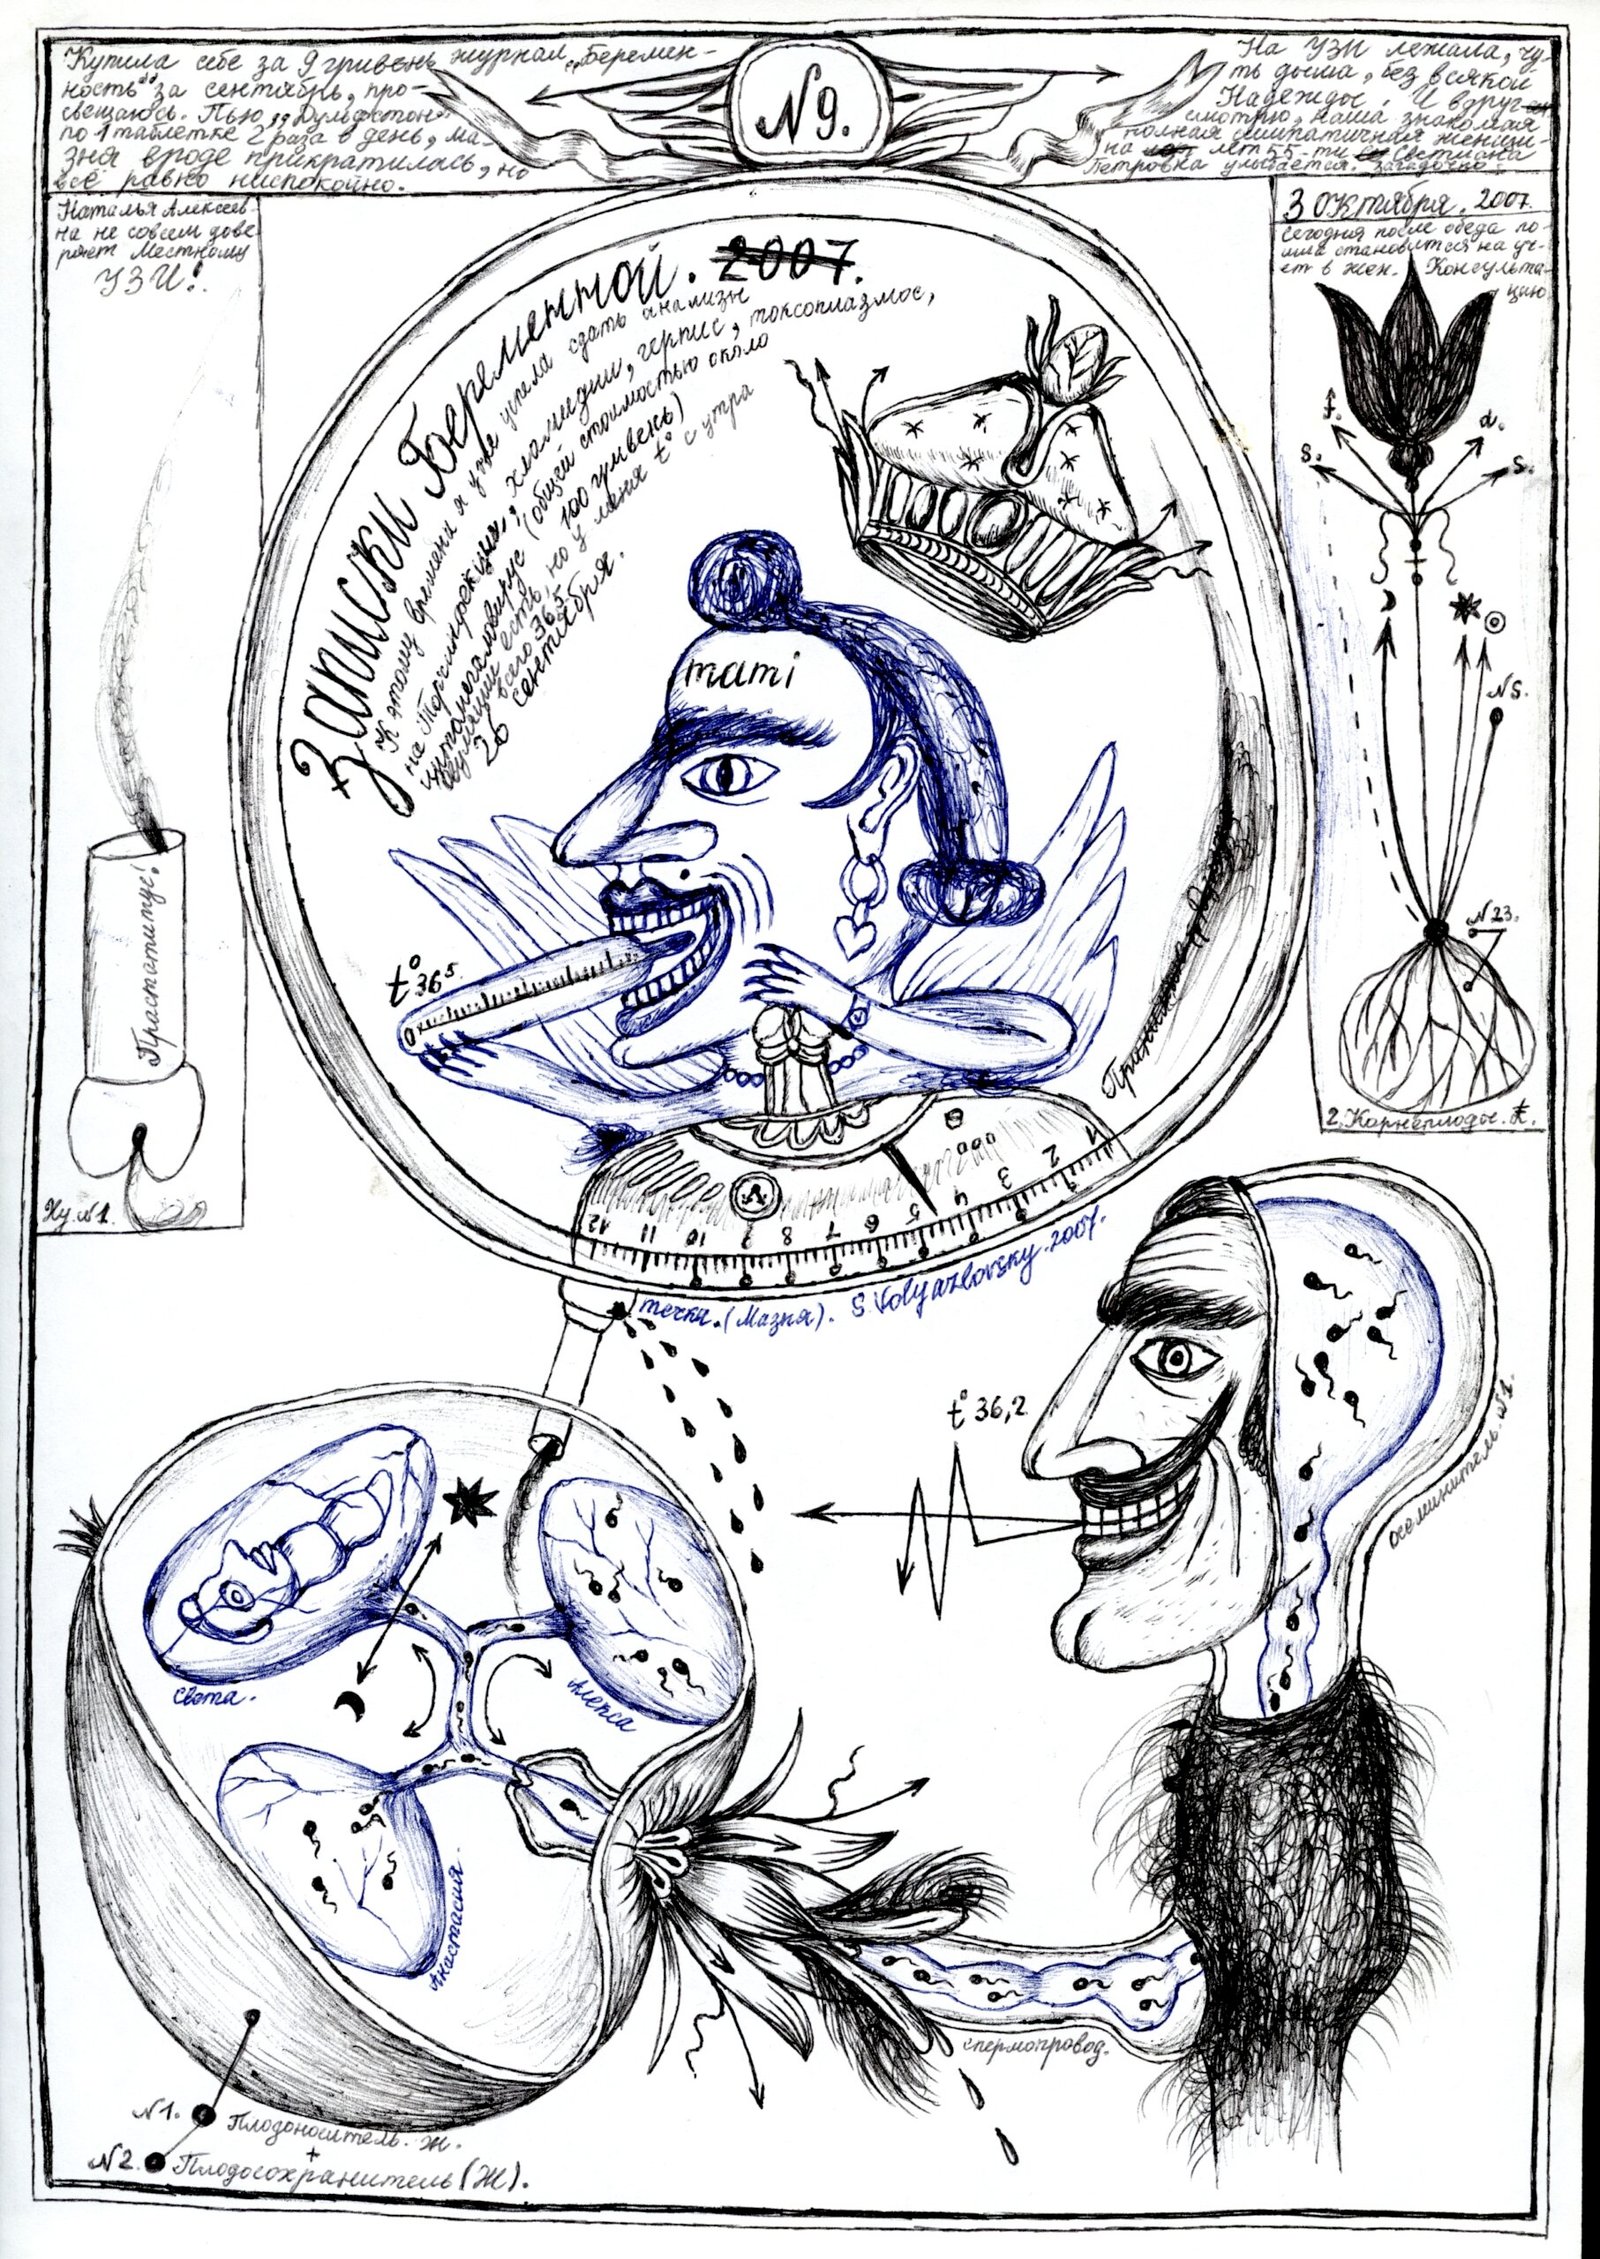 Купила себе за 9 гривень журнал „Беремен-
ность" за сентябрь, про-
свещаюсь. Пью „Дуфастон"
по 1 таблетке 2 раза в день, ма-
зня вроде прикратилась, но
всё равно ниспокойно.
N9.
На УЗИ лежала, чу-
ть дыша, без всякой
Надежды. И вдруг
смотрю, наша знакомая
полная симпатичная женщи-
на лет 55-ти Светлана
Петровка улыбается. Загадочно.
Наталья Алексеев-
на не совсем дове
ряет Местному
УЗИ!.
3 Октября. 2007.
Сегодня после обеда по-
шла становится на уч-
ет в жен. Консульта-
цию
Записки Беременной. 2007.
К этому времени я уже успела сдать анализы
на Торчинфекции, хламидии, герпис, токсоплазмос,
цитомегаловирус (общей стоимостью около
100 гривень)
есть, но у меня t° с утра
всего 36,5
26 сентября.
mami
t° 36⁵.
f.
d.
s.
s.
N S.
N 23.
2. Карнеплоды. Ж.
Прастатитус!
Ху. N1.
A
12 11 10 9 8 7 6 5 4 3 2 1
течка. (Мазня). S. Volyazlovsky. 2007.
t° 36,2
осеминитель. N1.
Света.
Алекса
Анастасия.
спермопровод.
N1. Плодоноситель. Ж.
+
N2. Плодосохранитель (Ж).